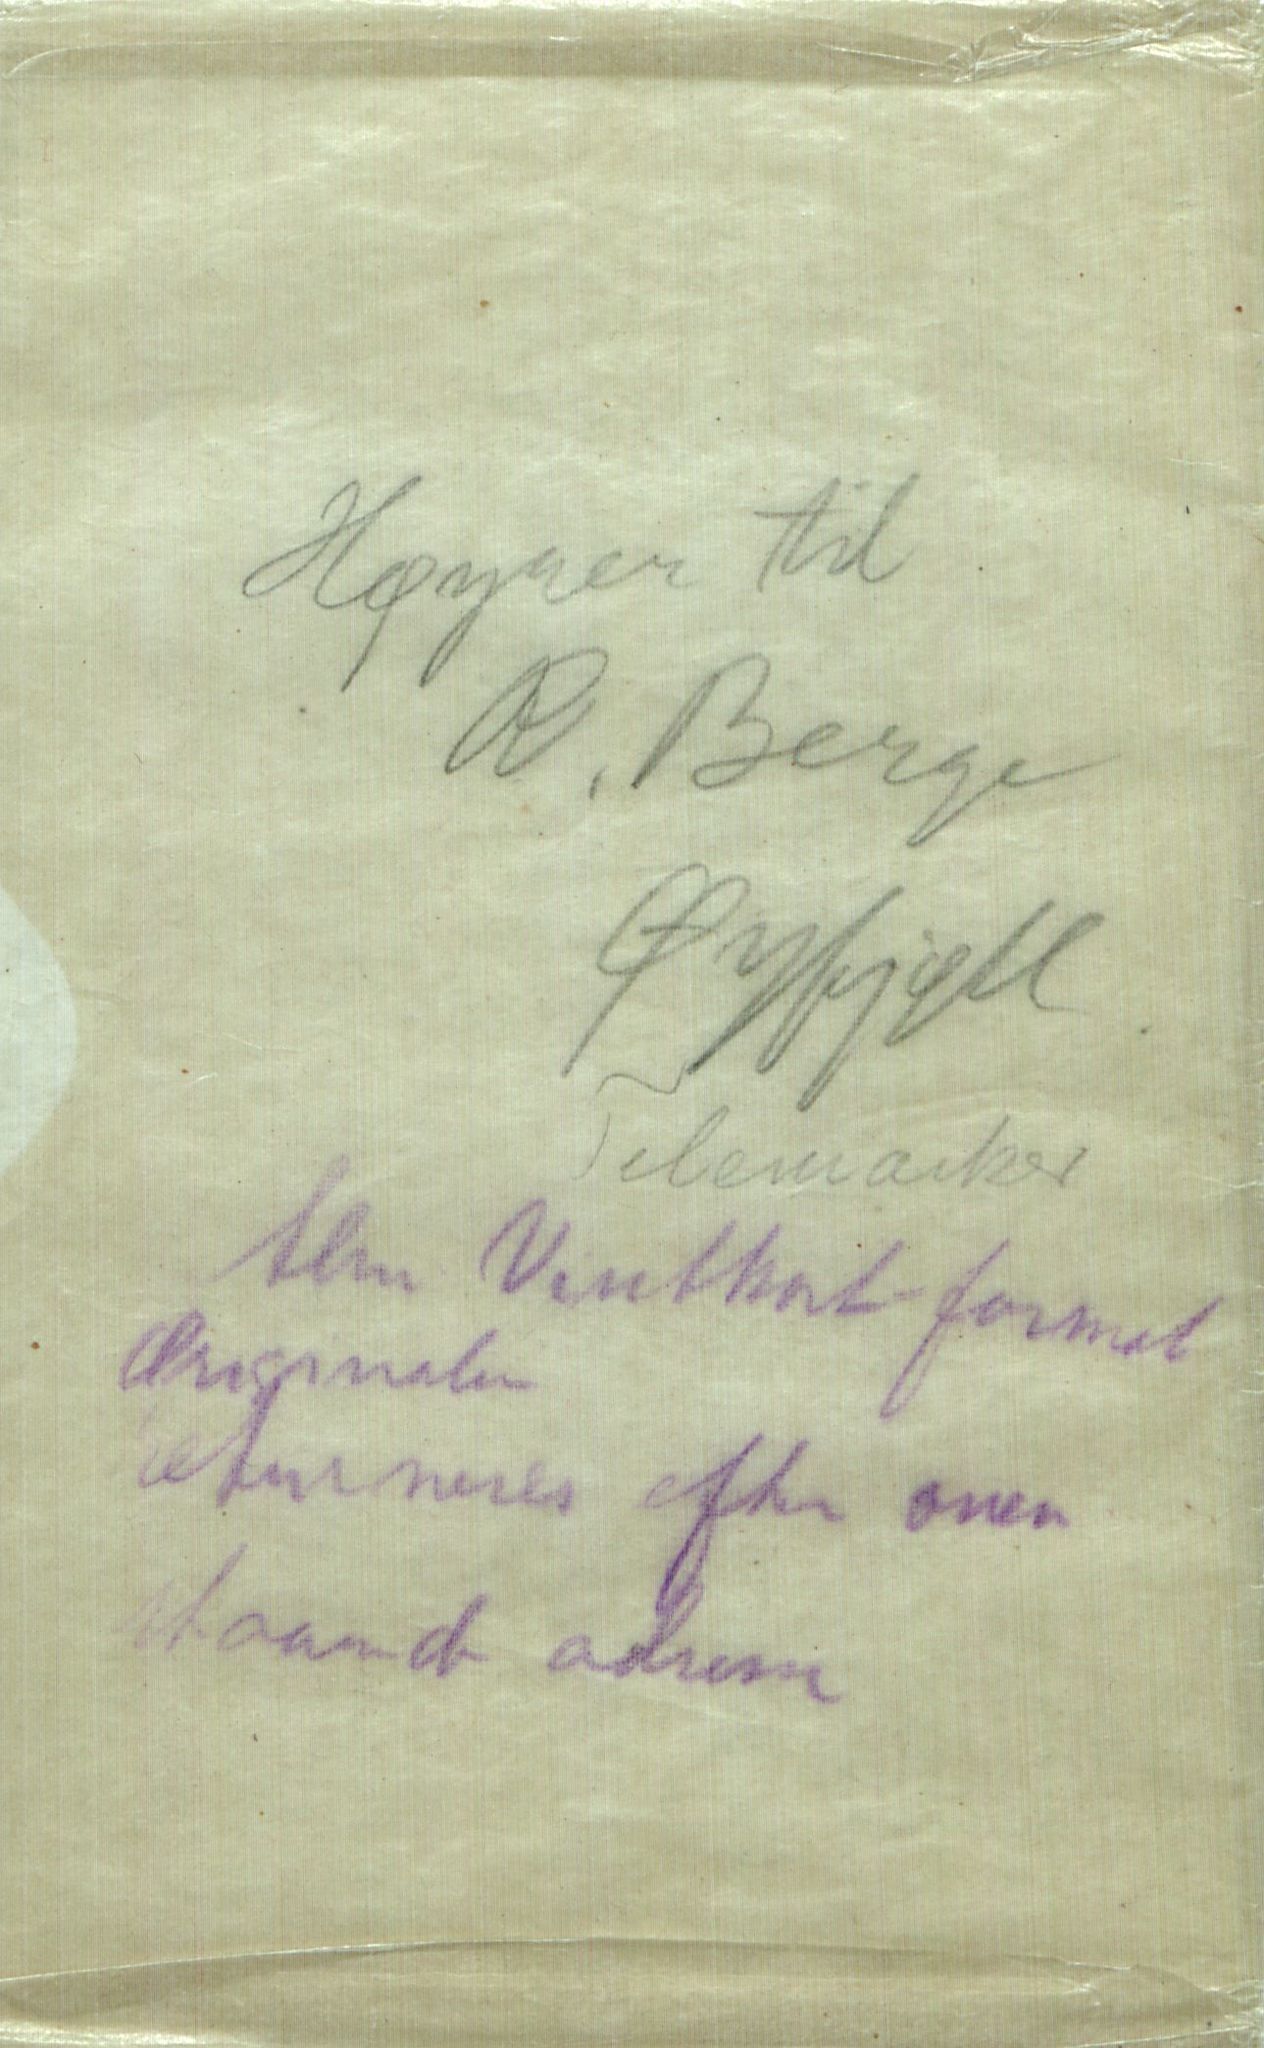 Høyrer til
R. Berge
Øyfjell
Telemarken
Alm Visitkort-format
Originalen
returneres efter oven
staaende adresse